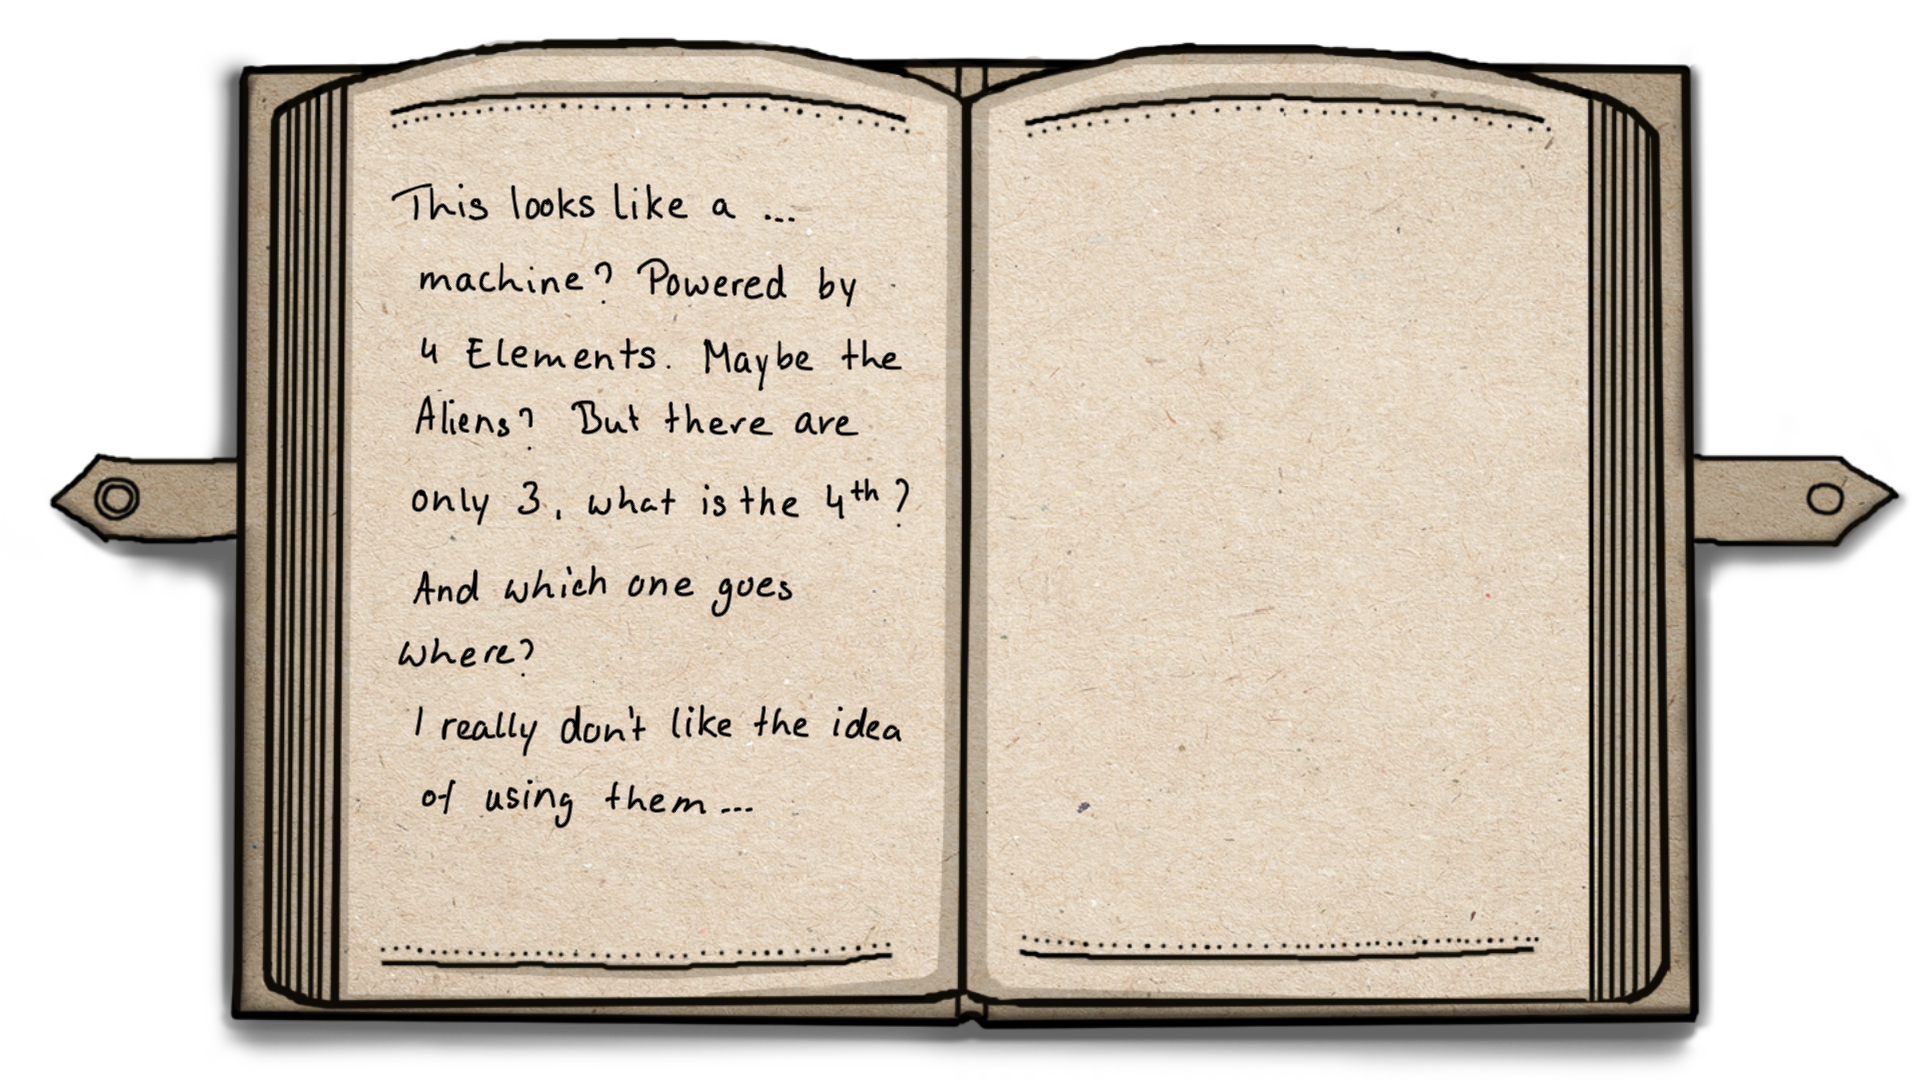 This looks like a ...
machine? Powered by
4 Elements. Maybe the
Aliens? But there are
only 3, what is the 4th?
And which one goes
where?
I really don't like the idea
of using them...